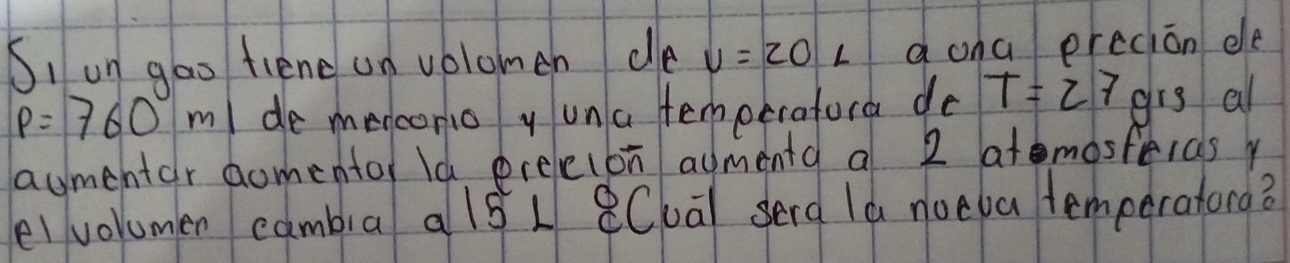 Si un gas tiene un volomen de v=20 L a ona preción de
P=760 ml de mercorio y una temperatora de T=27 grs al
aumentar aomentor la preción aumenta a 2 atomosferas y
el volumen cambia a 15 L ¿Cuál sera la noeva temperatora?